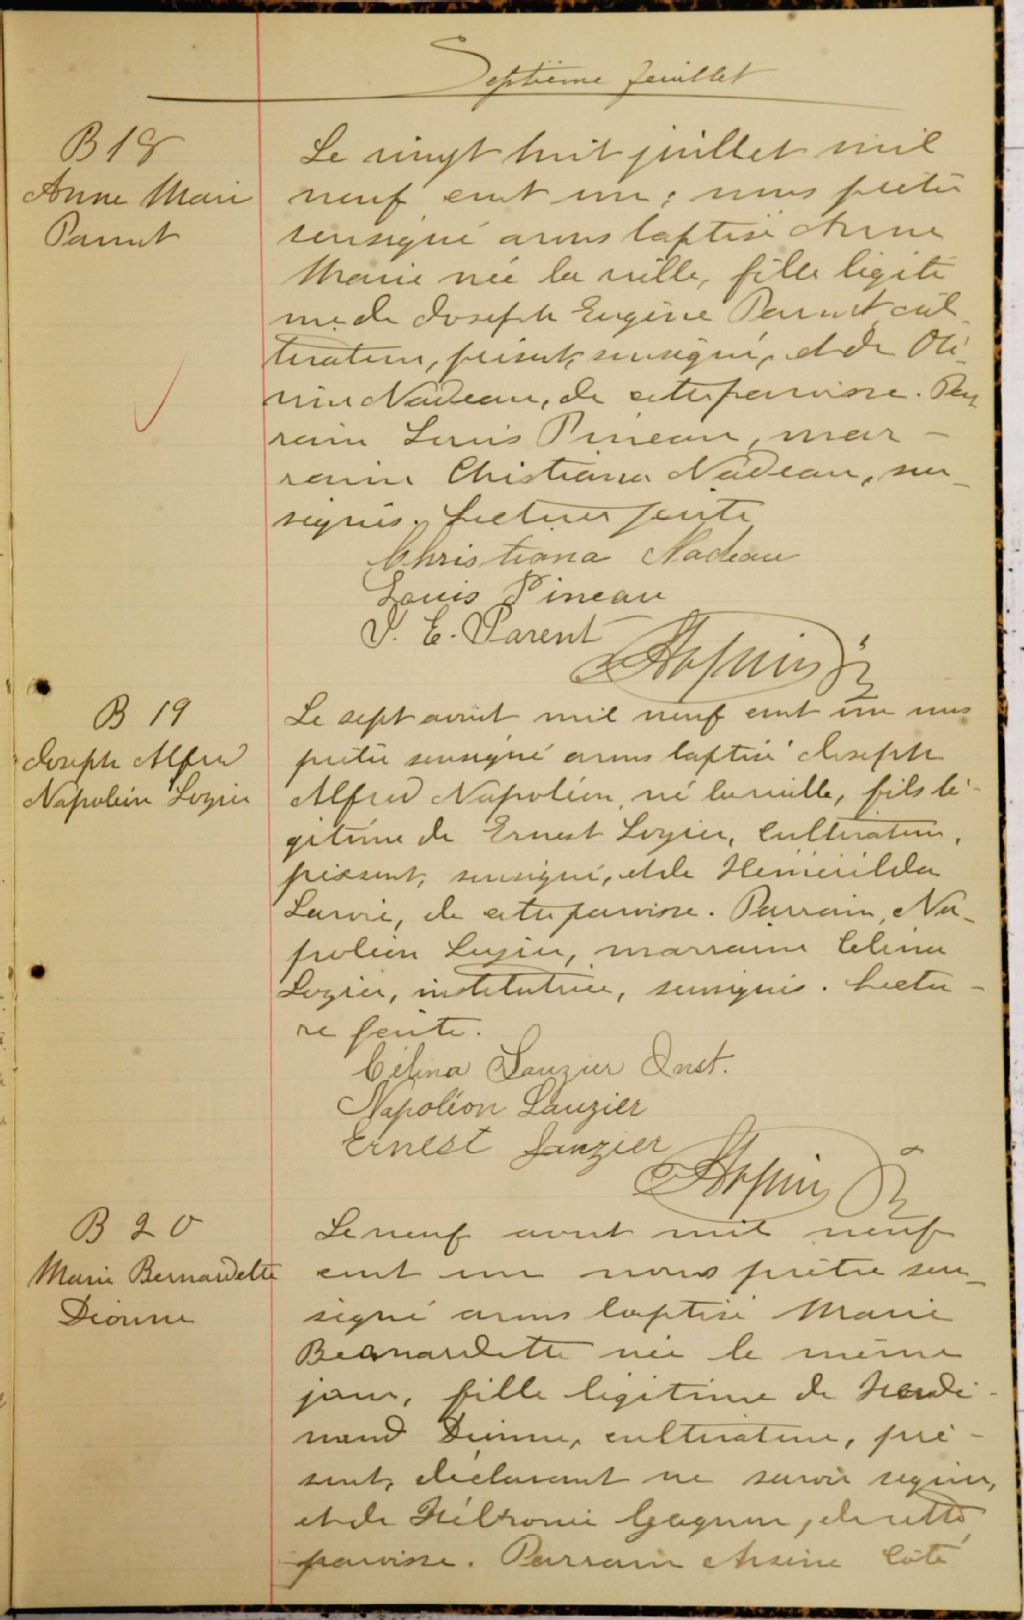 Septième feuillet
B 18
Anne Marie
Parent
Le vingt huit juillet mil
neuf cent un, nous prêtre
sousigné avons baptisé Anne
Marie née la veille, fille légiti
me de Joseph Eugène Parent cul
tivateur, présent, sousigné, et de
Nadeau, de cette paroisse. Par
rain Louis Pineau, mar-
raine Christiana Nadeau, sou-
signés. Lecture faite
Christiana Nadeau
Louis Pineau
J. E. Parent
B 19
Joseph Alfred
Napoléon Lozier
Le sept aout mil neuf cent un nous
prêtre sousigné avons baptisé Joseph
Alfred Napoléon, né la veille, fils lé-
gitime de Ernest Lozier, Cultivateur,
présent, sousigné, et de Hémérilda
Lavoie, de cette paroisse. Parrain, Na-
poléon Lozier, marraine Célina
Lozier, institutrice, sousignés. Lectu-
re faite.
Célina Lauzier Inst.
Napoléon Lauzier
Ernest Lauzier
B 20
Marie Bernardette
Dionne
Le neuf aout mil neuf
cent un nous prêtre sou-
signé avons baptisé Marie
Bernardette née le même
jour, fille légitime de Ferdi-
nand Dionne, cultivateur, pré-
sent, déclarant ne savoir signer,
et de Gagnon, de cette
paroisse. Parrain Arsène Coté